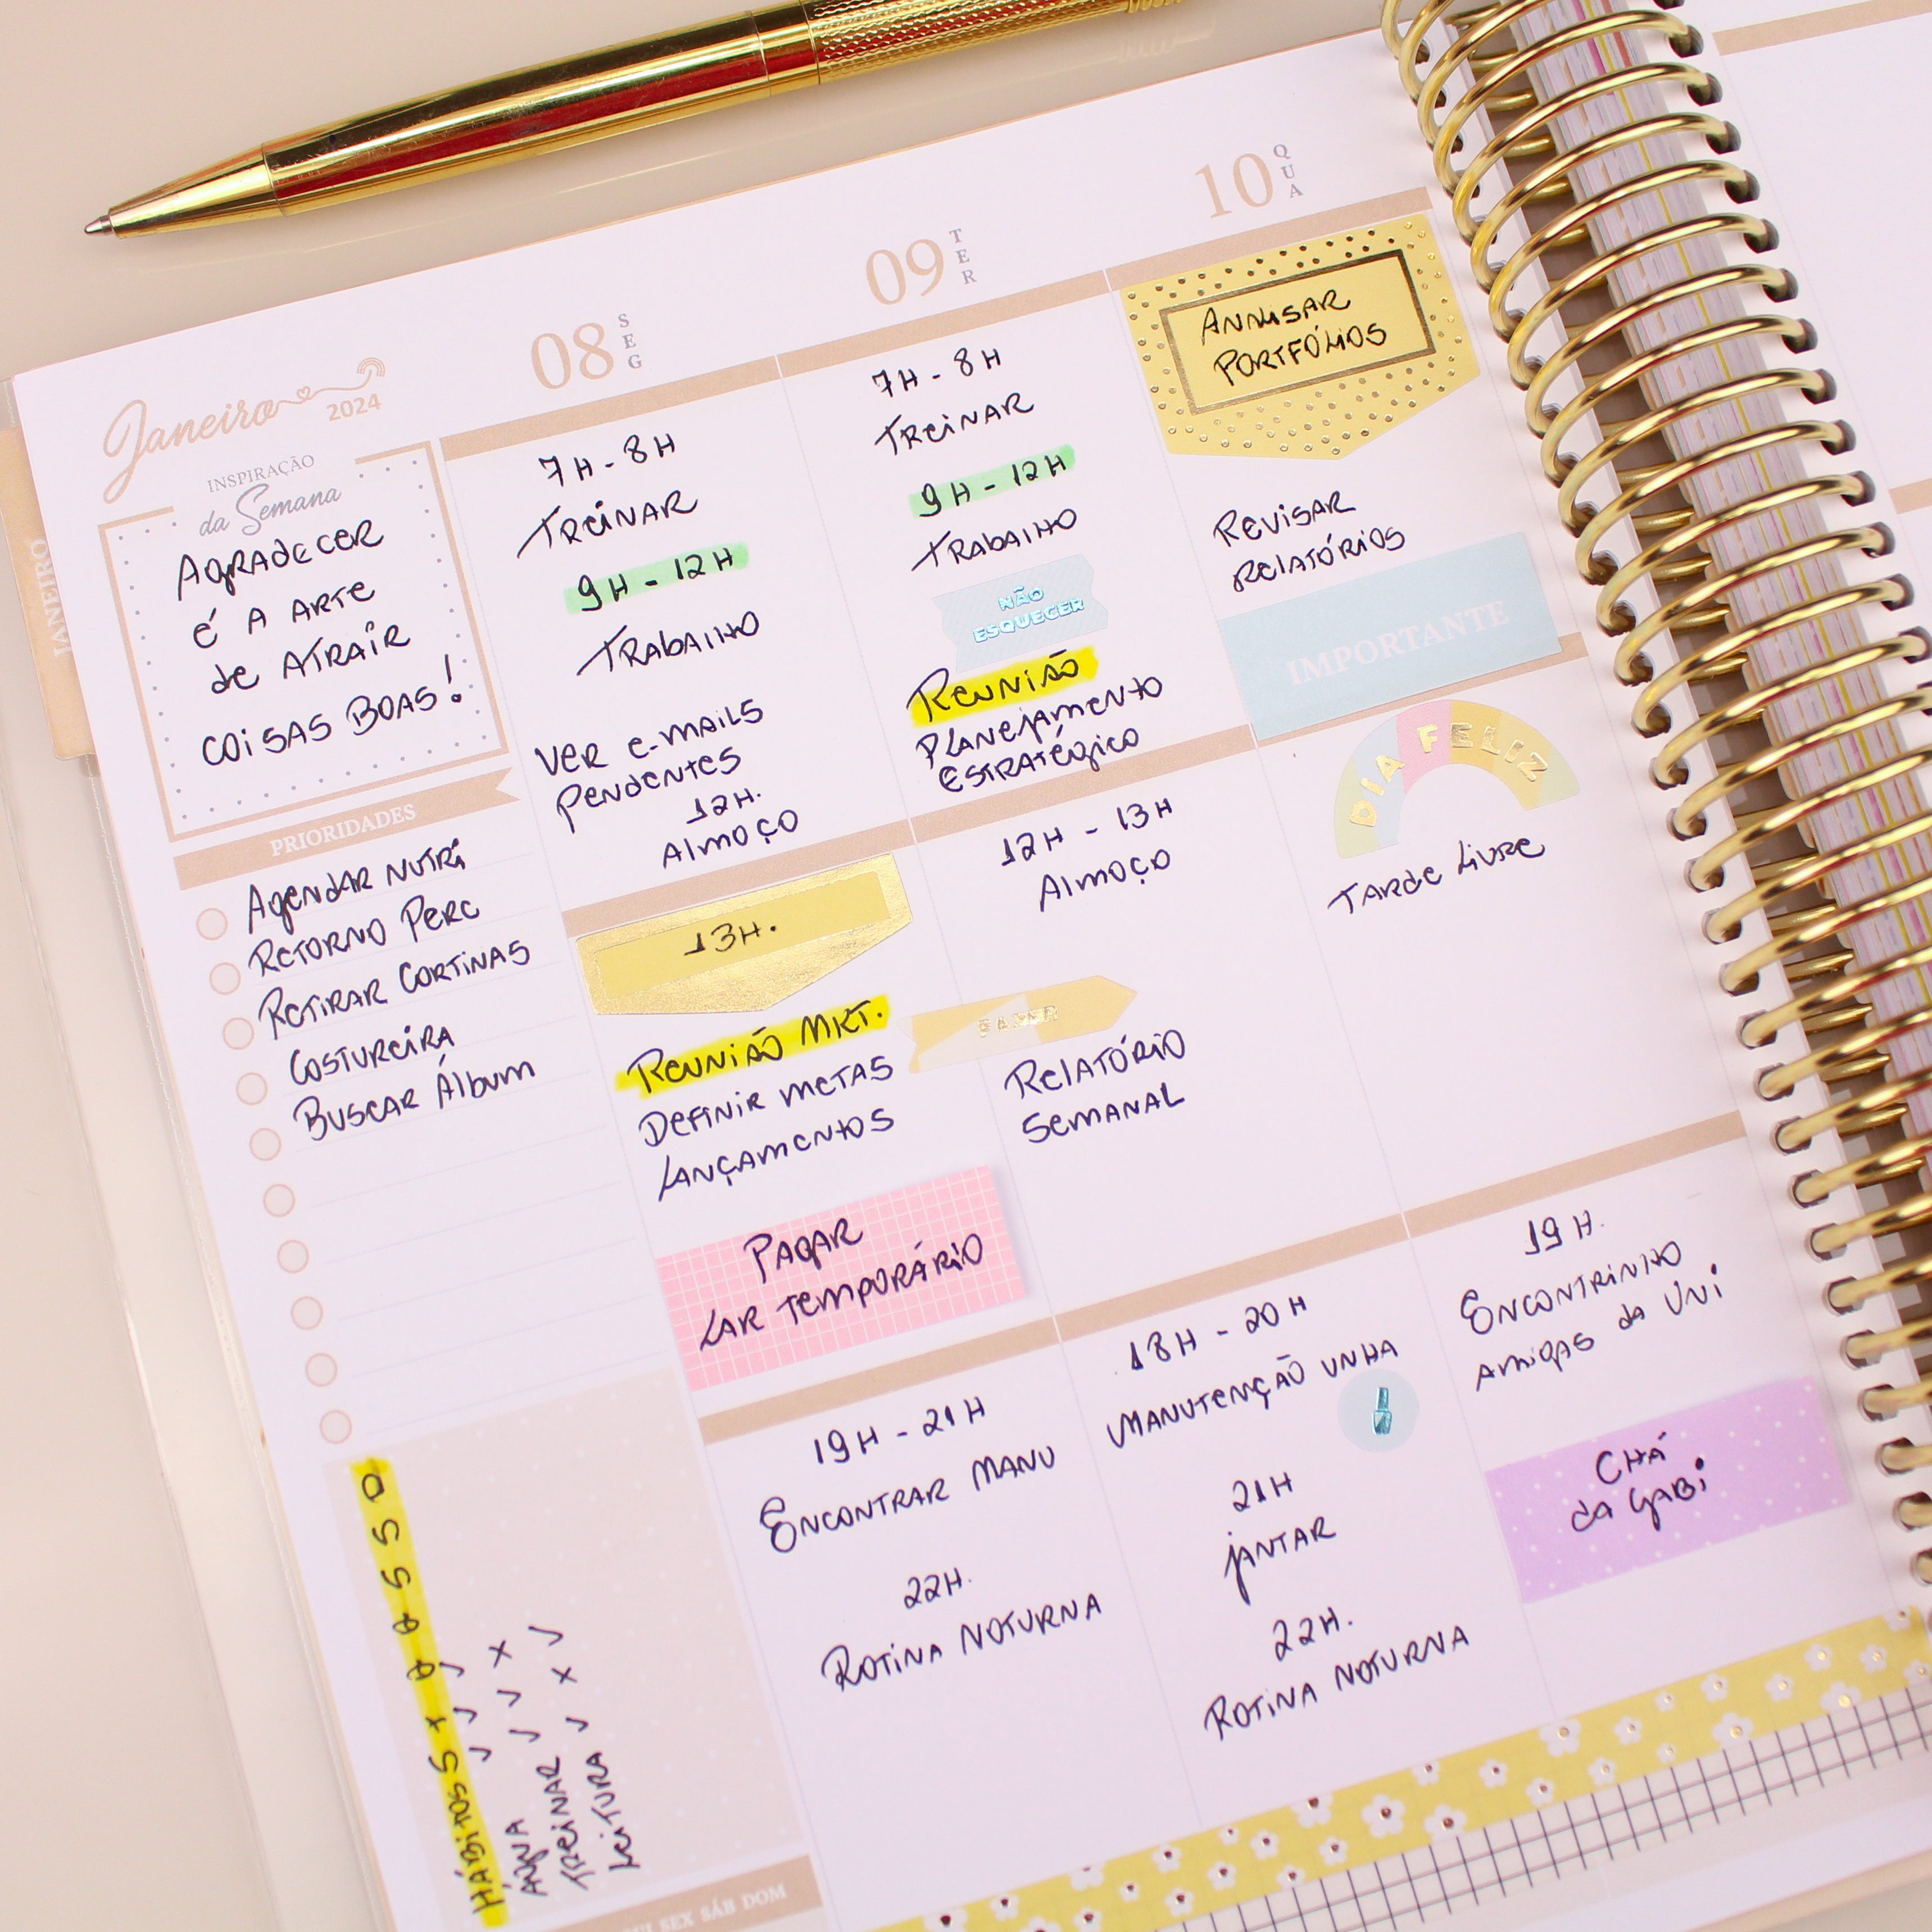 Janeiro
2024
JANEIRO
INSPIRAÇÃO
da Semana
AGRADECER
É A ARTE
de ATRAIR
COISAS BOAS!
PRIORIDADES
AGENDAR NUTRI
RETORNO PERC
RETIRAR CORTINAS
COSTUREIRA
BUSCAR ÁLBUM
HÁBITOS S T Q Q S S D
ÁGUA ✓ ✓ ✓
TREINAR ✓ ✓ X
LEITURA ✓ X ✓
SEX SÁB DOM
08 SEG
7H - 8H
TREINAR
9H - 12H
TRABALHO
VER E-MAILS
PENDENTES
12H.
ALMOÇO
13H.
REUNIÃO MKT.
DEFINIR METAS
LANÇAMENTOS
PAGAR
LAR TEMPORÁRIO
19H - 21H
ENCONTRAR MANU
22H.
ROTINA NOTURNA
09 TER
7H - 8H
TREINAR
9H - 12H
TRABALHO
NÃO
ESQUECER
REUNIÃO
PLANEJAMENTO
ESTRATÉGICO
12H - 13H
ALMOÇO
FAZER
RELATÓRIO
SEMANAL
18H - 20H
MANUTENÇÃO UNHA
21H
JANTAR
22H.
ROTINA NOTURNA
10 QUA
ANALISAR
PORTFÓLIOS
REVISAR
RELATÓRIOS
IMPORTANTE
DIA FELIZ
TARDE LIVRE
19H.
ENCONTRINHO
AMIGAS DA UNI
CHÁ
DA GABI